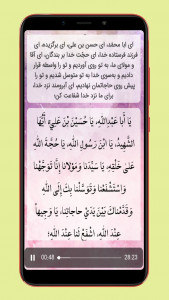 ای ابا محمّد، ای حسن بن علی، ای برگزیده، ای
فرزند فرستاده خدا، ای حجّت خدا بر بندگان، ای آقا
و مولای ما، به تو روی آوردیم و تو را واسطه قرار
دادیم و به‌سوی خدا به تو متوسل شدیم و تو را
پیش روی حاجاتمان نهادیم، ای آبرومند نزد خدا
برای ما نزد خدا شفاعت کن؛
يَا أَبا عَبْدِاللّٰهِ، يَا حُسَيْنَ بْنَ عَلِيٍّ، أَيُّهَا
الشَّهِيدُ، يَا ابْنَ رَسُولِ اللّٰهِ، يَا حُجَّةَ اللّٰهِ
عَلَىٰ خَلْقِهِ، يَا سَيِّدَنا وَمَوْلانا إِنَّا تَوَجَّهْنا
وَاسْتَشْفَعْنا وَتَوَسَّلْنا بِكَ إِلَى اللّٰهِ
وَقَدَّمْناكَ بَيْنَ يَدَيْ حاجاتِنا، يَا وَجِيهاً
عِنْدَ اللّٰهِ، اشْفَعْ لَنا عِنْدَ اللّٰهِ؛
00:48 28:23